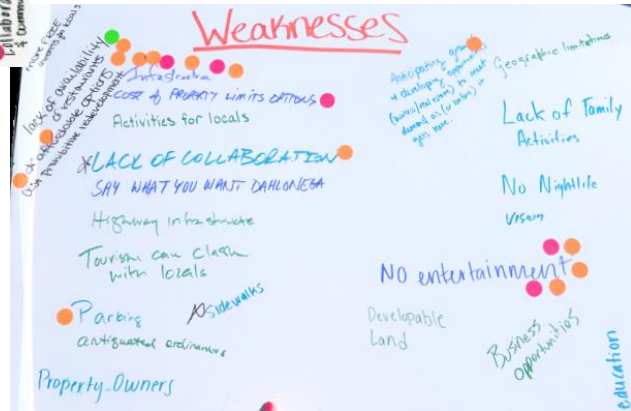 Weaknesses
Collabora
& commun
more FREE
events for locals
lack of availability
of restaurants
& affordable options
Cost prohibitive redevelopment
COST of PROPERTY LIMITS OPTIONS
Activities for locals
*LACK OF COLLABORATION
SAY WHAT YOU WANT DAHLONEGA
Highway Infrastructure
Tourism can Clash
with locals
Parking
Sidewalks
antiquated ordinances
Property Owners
Anticipating growth
& developing opportunities
to meet
demand as (or before) it
gets here.
Geographic limitations
Lack of Family
Activities
No Nightlife
Vision
NO entertainment
Developable
Land
Business
Opportunities
education